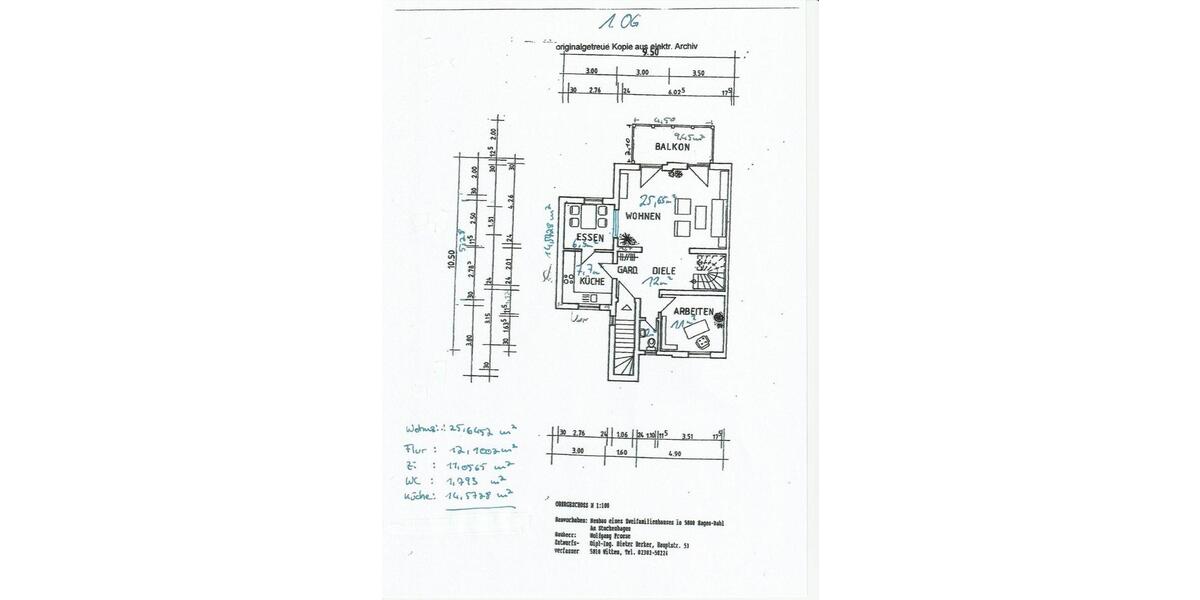 1. OG
originalgetreue Kopie aus elektr. Archiv
9.50
3.00 3.00 3.50
30 2.76 24 6.02⁵ 17⁵
4,50
9.45 m²
2.10
BALKON
25,65 m²
WOHNEN
ESSEN
6,5 m²
14,5728 m²
7,7 m²
KÜCHE
GARD.
DIELE
12 m²
ARBEITEN
11 m²
10.50
2.00 2.50 2.78⁵ 3.80
5,28
30 11⁵ 30
2.00 1.51 3.15
30 12⁵ 24 30
4.26 2.01 1.63⁵
30 24 11⁵ 30
30 2.76 24 1.06 24 1.10 11⁵ 3.51 17⁵
3.00 1.60 4.90
Wohnz.: 25,6452 m²
Flur : 12,1002 m²
Zi : 11,0565 m²
WC : 1,793 m²
Küche: 14,5728 m²
OBERGESCHOSS M 1:100
Bauvorhaben: Neubau eines Zweifamilienhauses in 5800 Hagen-Dahl
Am Stockenhagen
Bauherr: Wolfgang Froese
Entwurfs- Dipl-Ing. Dieter Derker, Hauptstr. 53
verfasser 5810 Witten, Tel. 02302-58224